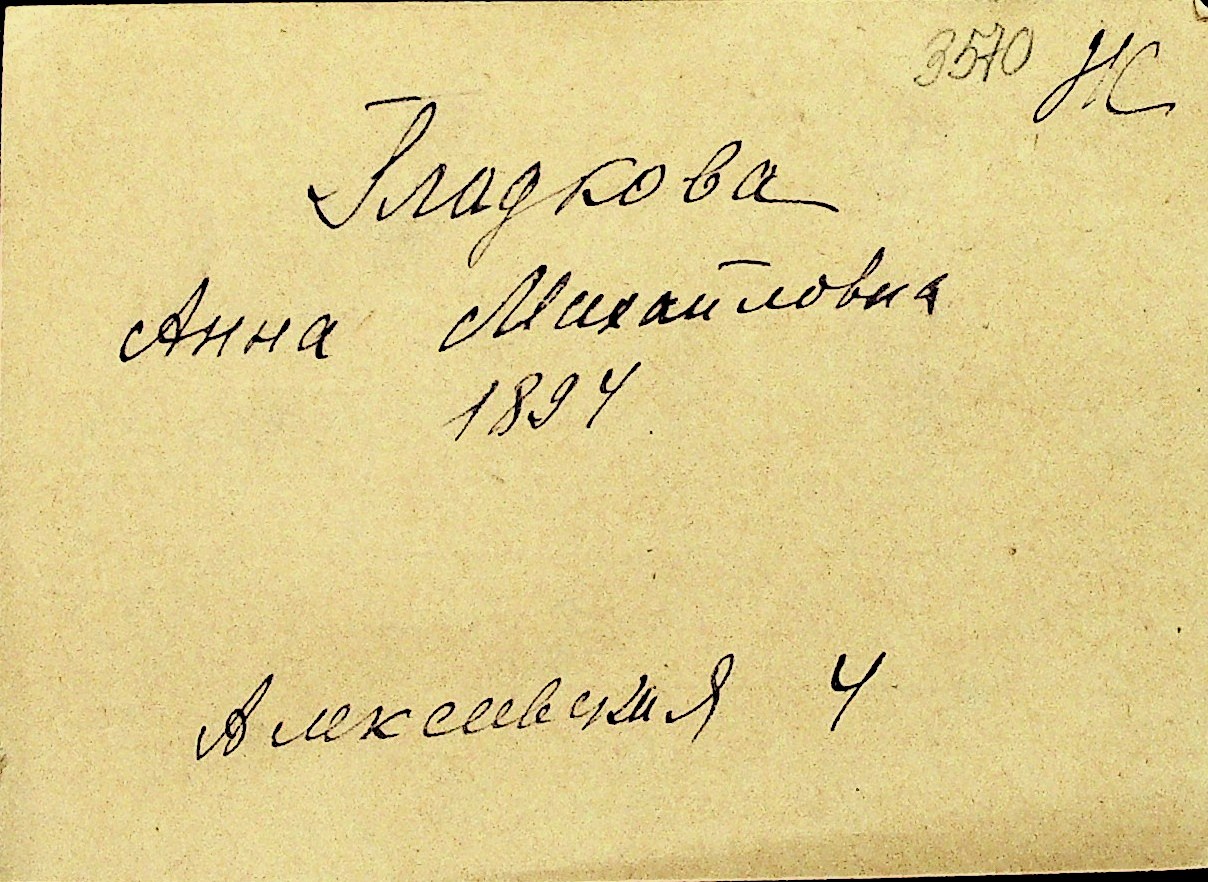 3570 Ж
Гладкова
Анна Михайловна
1894
Алексеевская 4